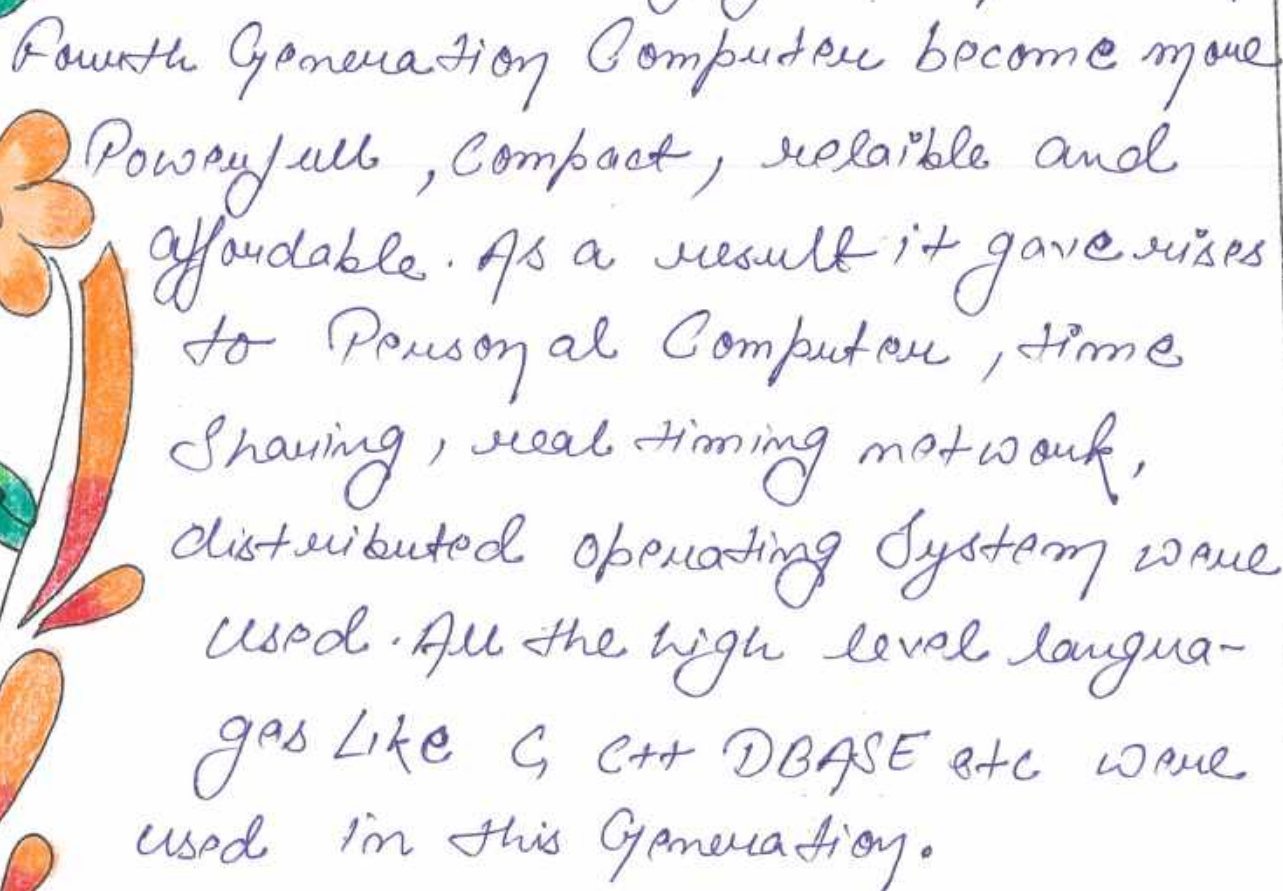 Fourth Generation Computer become more
Powerfull, Compact, relaible and
affordable. As a result it gave rises
to Personal Computer, time
Sharing, real timing network,
distributed operating System were
used. All the high level langua-
ges Like C, C++ DBASE etc were
used in this Generation.